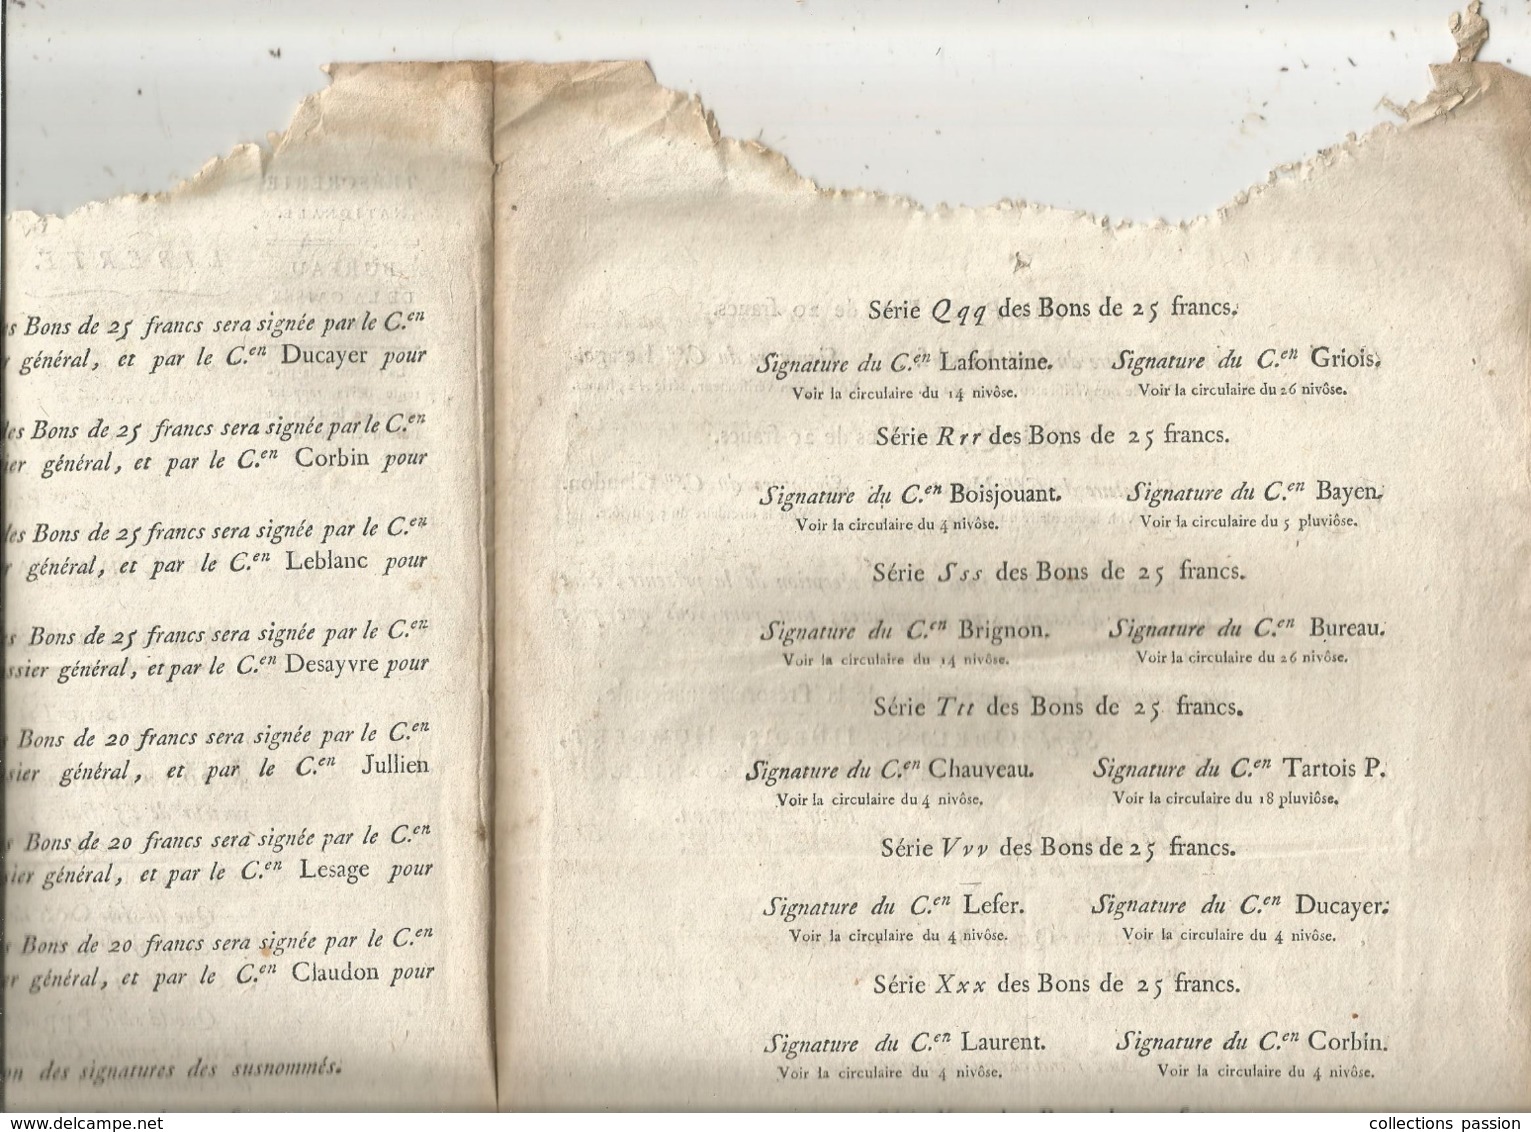 Bons de 25 francs sera signée par le C.en
général, et par le C.en Ducayer pour
Bons de 25 francs sera signée par le C.en
général, et par le C.en Corbin pour
Bons de 25 francs sera signée par le C.en
général, et par le C.en Leblanc pour
Bons de 25 francs sera signée par le C.en
général, et par le C.en Desayvre pour
Bons de 20 francs sera signée par le C.en
général, et par le C.en Jullien
Bons de 20 francs sera signée par le C.en
général, et par le C.en Lesage pour
Bons de 20 francs sera signée par le C.en
général, et par le C.en Claudon pour
des signatures des susnommés.
Série Qqq des Bons de 25 francs.
Signature du C.en Lafontaine. Signature du C.en Griois.
Voir la circulaire du 14 nivôse. Voir la circulaire du 26 nivôse.
Série Rrr des Bons de 25 francs.
Signature du C.en Boisjouant. Signature du C.en Bayen.
Voir la circulaire du 4 nivôse. Voir la circulaire du 5 pluviôse.
Série Sss des Bons de 25 francs.
Signature du C.en Brignon. Signature du C.en Bureau.
Voir la circulaire du 14 nivôse. Voir la circulaire du 26 nivôse.
Série Ttt des Bons de 25 francs.
Signature du C.en Chauveau. Signature du C.en Tartois P.
Voir la circulaire du 4 nivôse. Voir la circulaire du 18 pluviôse.
Série Vvv des Bons de 25 francs.
Signature du C.en Lefer. Signature du C.en Ducayer.
Voir la circulaire du 4 nivôse. Voir la circulaire du 4 nivôse.
Série Xxx des Bons de 25 francs.
Signature du C.en Laurent. Signature du C.en Corbin.
Voir la circulaire du 4 nivôse. Voir la circulaire du 4 nivôse.
www.delcampe.net
collections passion